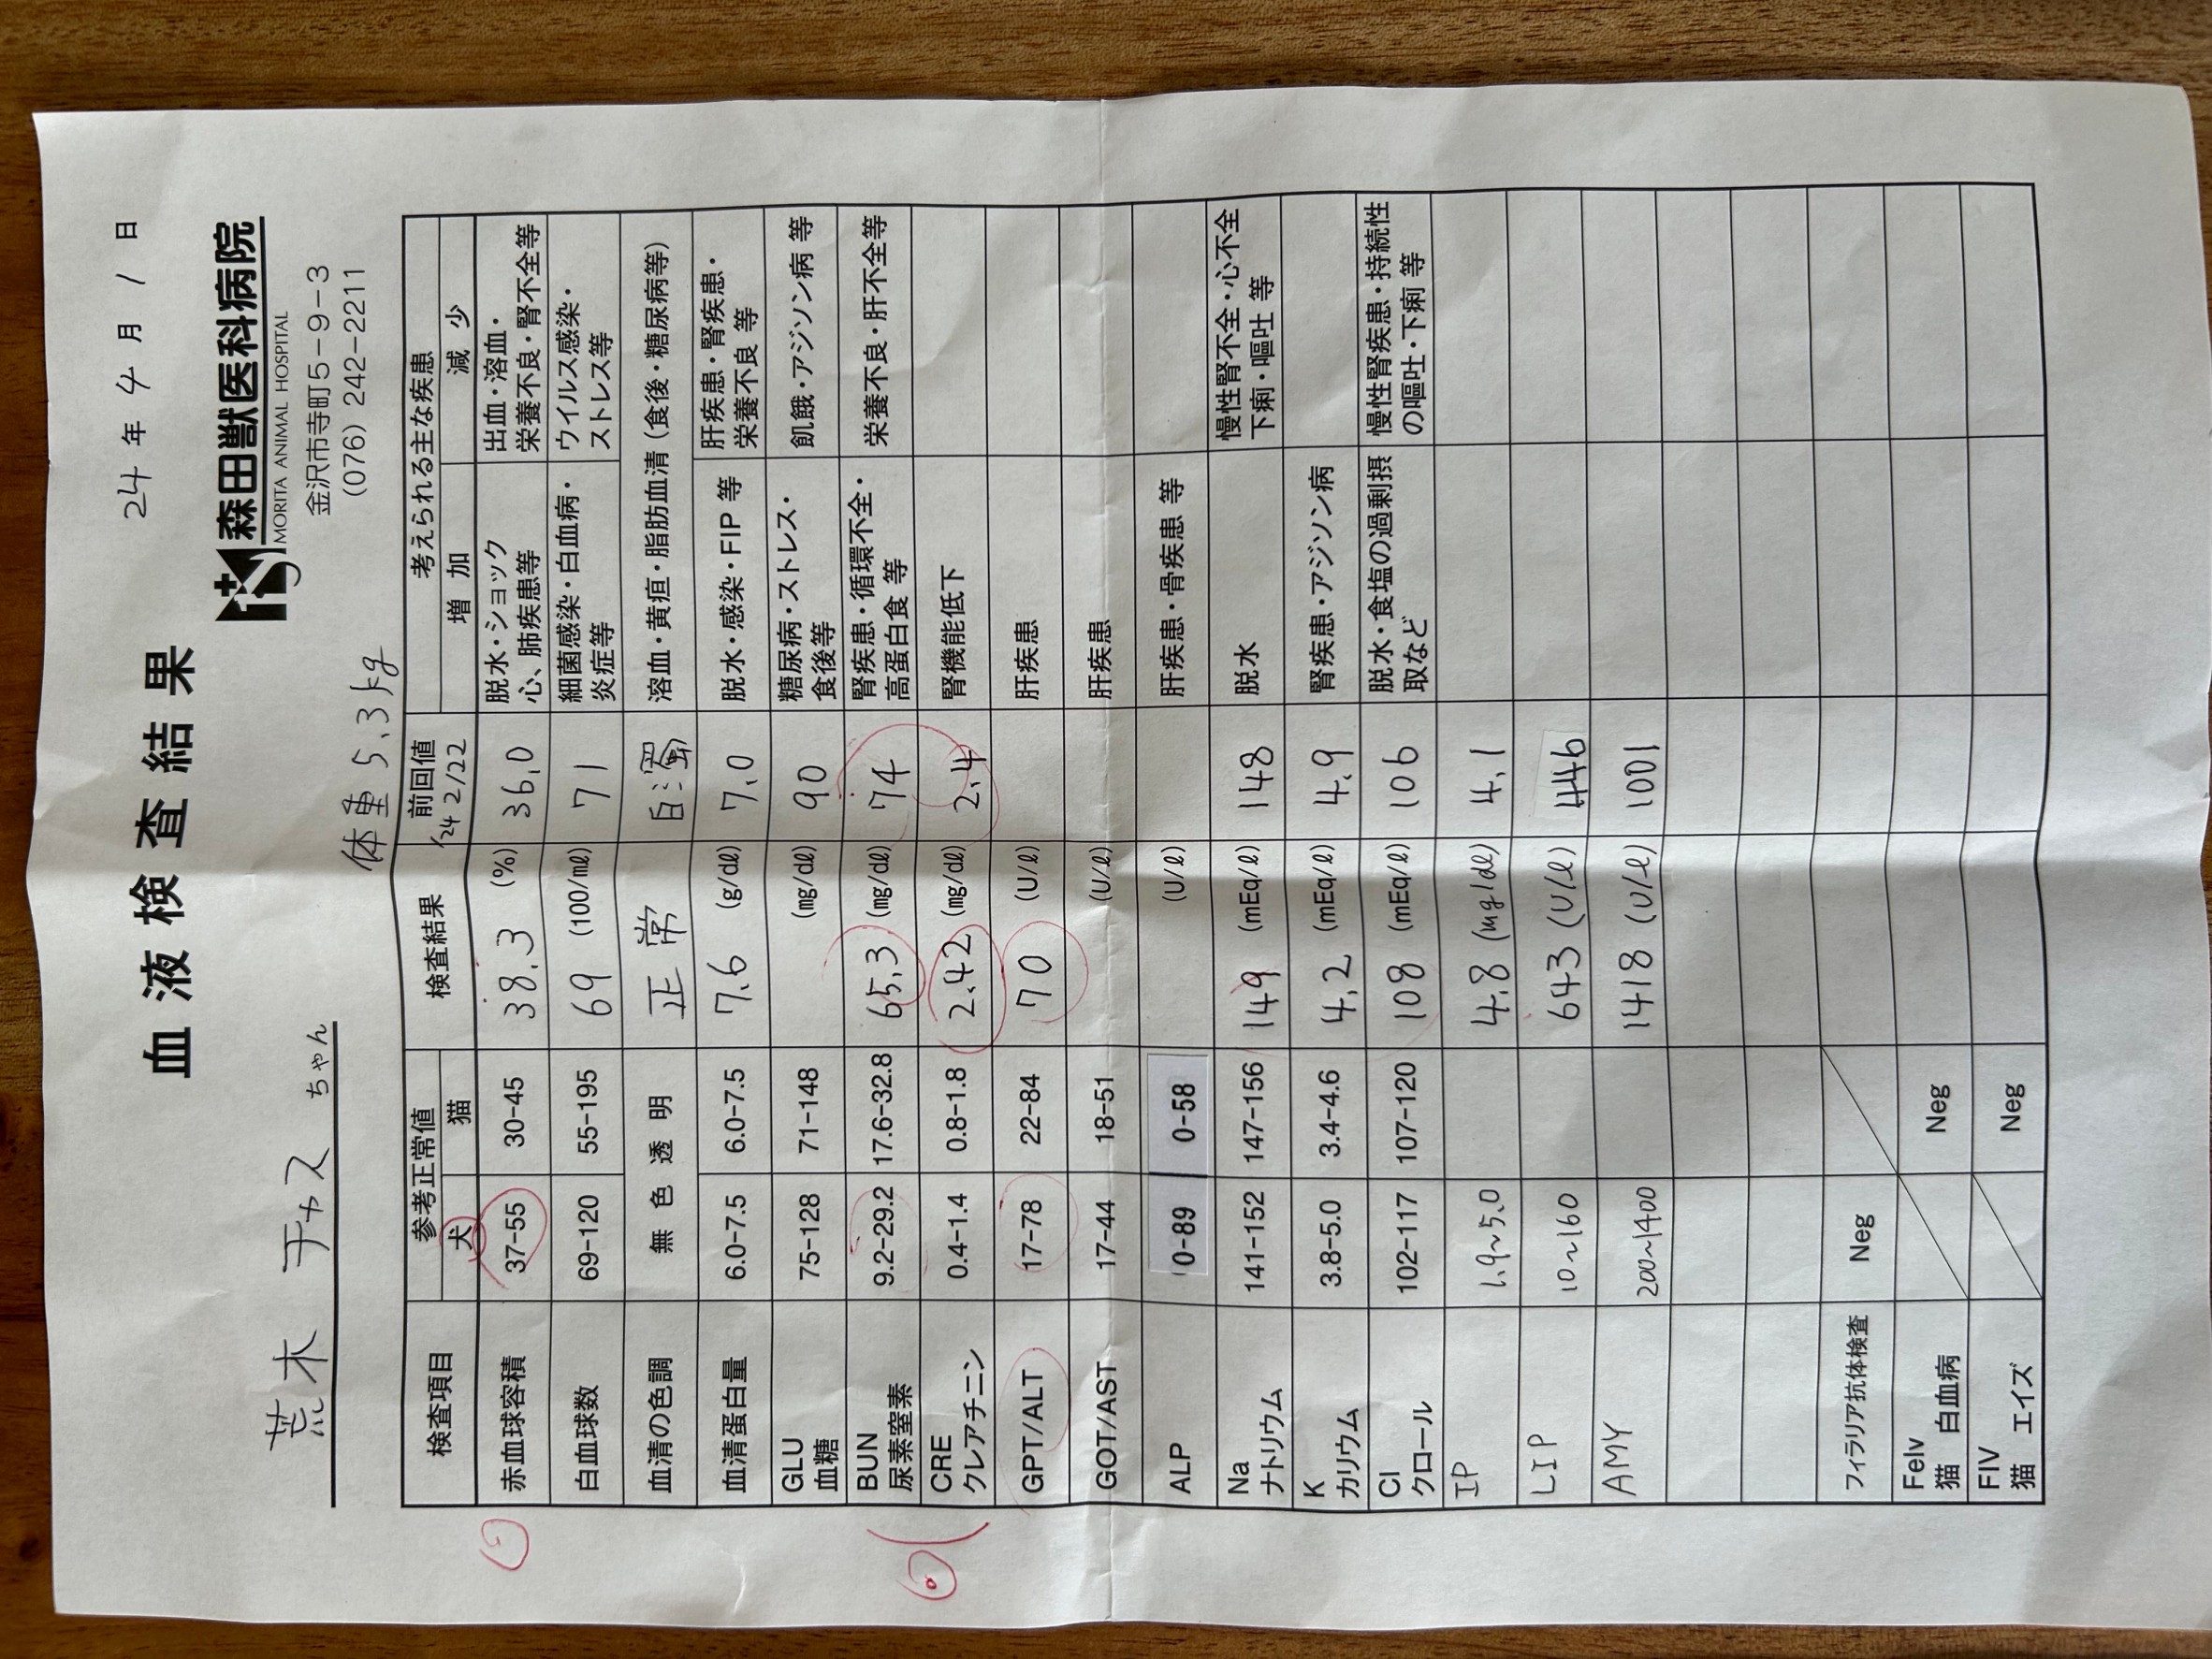 血液検査結果
24年4月1日
荒木 チャス ちゃん
森田獣医科病院
MORITA ANIMAL HOSPITAL
金沢市寺町5-9-3
(076) 242-2211
体重 5.3kg
検査項目 参考正常値 検査結果 前回値 考えられる主な疾患
犬 猫 '24 2/22 増加 減少
赤血球容積 37-55 30-45 38.3 (%) 36.0 脱水・ショック 出血・溶血・
心、肺疾患等 栄養不良・腎不全等
白血球数 69-120 55-195 69 (100/㎖) 71 細菌感染・白血病・ ウイルス感染・
炎症等 ストレス等
血清の色調 無色透明 正常 白濁 溶血・黄疸・脂肪血清(食後・糖尿病等)
血清蛋白量 6.0-7.5 6.0-7.5 7.6 (g/㎗) 7.0 脱水・感染・FIP 等 肝疾患・腎疾患・
栄養不良 等
GLU 血糖 75-128 71-148 (mg/㎗) 90 糖尿病・ストレス・ 飢餓・アジソン病 等
食後等
BUN 尿素窒素 9.2-29.2 17.6-32.8 65.3 (mg/㎗) 74 腎疾患・循環不全・ 栄養不良・肝不全等
高蛋白食 等
CRE クレアチニン 0.4-1.4 0.8-1.8 2.42 (mg/㎗) 2.4 腎機能低下
GPT/ALT 17-78 22-84 70 (U/ℓ) 肝疾患
GOT/AST 17-44 18-51 (U/ℓ) 肝疾患
ALP 0-89 0-58 (U/ℓ) 肝疾患・骨疾患 等
Na ナトリウム 141-152 147-156 149 (mEq/ℓ) 148 脱水 慢性腎不全・心不全
下痢・嘔吐 等
K カリウム 3.8-5.0 3.4-4.6 4.2 (mEq/ℓ) 4.9 腎疾患・アジソン病
Cl クロール 102-117 107-120 108 (mEq/ℓ) 106 脱水・食塩の過剰摂 慢性腎疾患・持続性
取など の嘔吐・下痢 等
IP 1.9~5.0 4.8 (mg/dl) 4.1
LIP 10~160 643 (U/ℓ) 446
AMY 200~1400 1418 (U/ℓ) 1001
フィラリア抗体検査 Neg
Felv 猫 白血病 Neg
FIV 猫 エイズ Neg